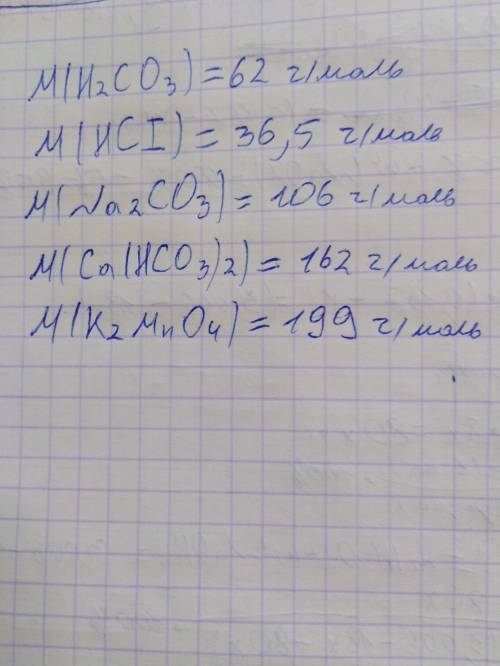 M(H₂CO₃) = 62 г/моль
M(HCI) = 36,5 г/моль
M(Na₂CO₃) = 106 г/моль
M(Ca(HCO₃)2) = 162 г/моль
M(K₂MnO₄) = 199 г/моль